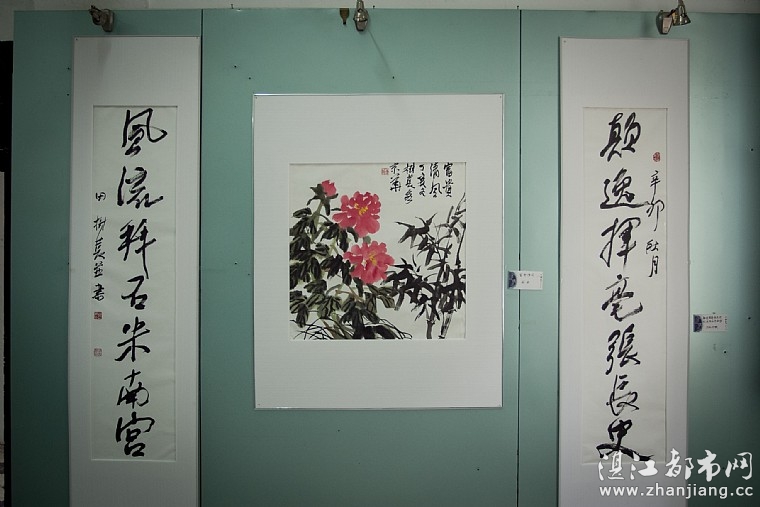 顛逸揮毫張長史
辛卯秋月
富貴
清風
風流拜石米南宮
田樹萇並書
湛江都市网
www.zhanjiang.cc